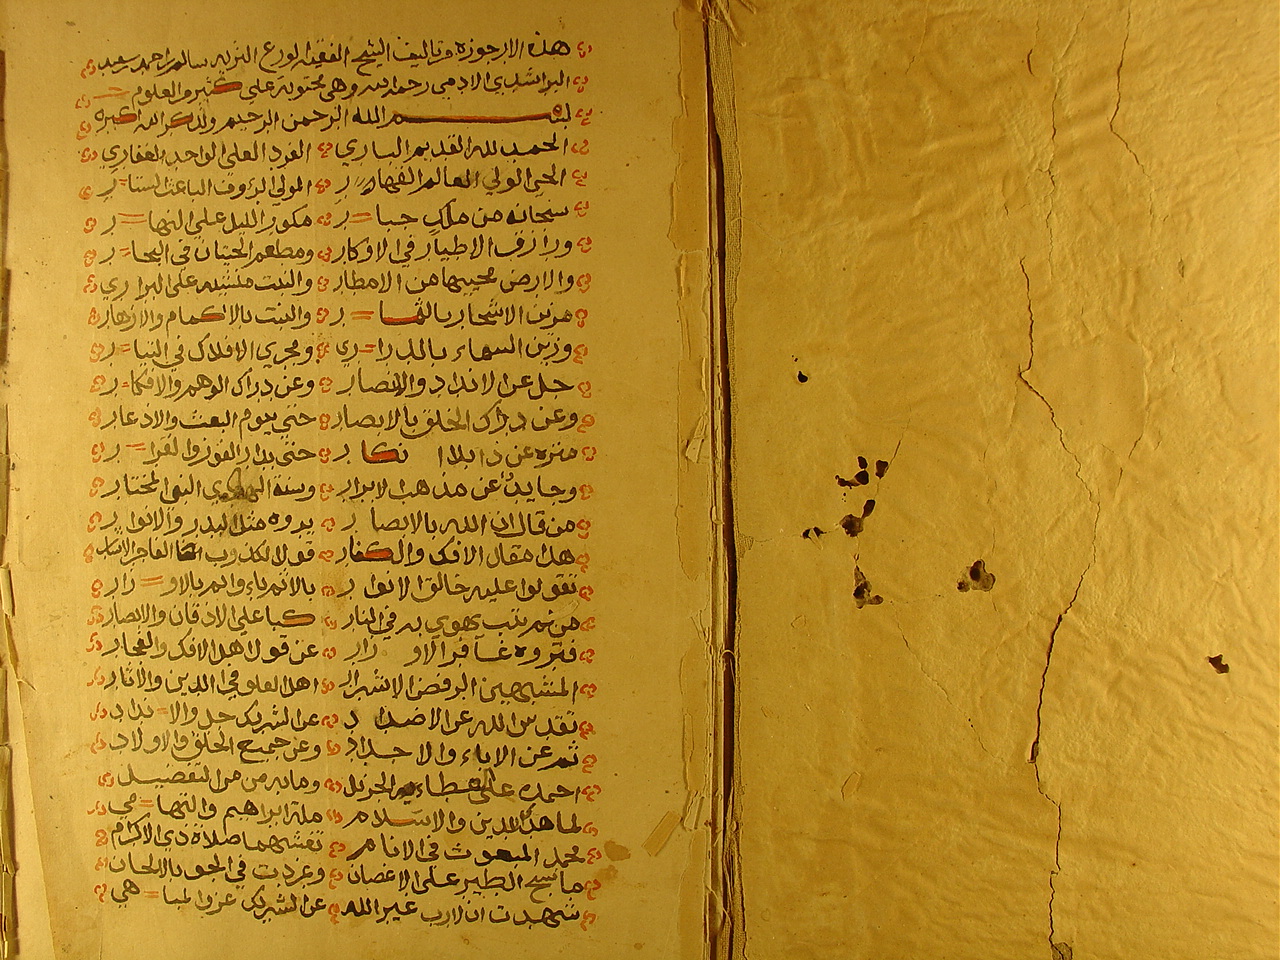 هذه الارجوزة من تاليف الشيخ الفقيه الورع النزيه سالم بن احمد بن سعيد
البراشدي الادمي رحمه الله وهي محتوية على كثير من العلوم
بسم الله الرحمن الرحيم ولذكر الله اكبر
الحمد لله القديم الباري الفرد العلي الواحد الغفاري
الحي الولي العالم القهار المولى الرءوف الباعث الستار
سبحانه من ملك جبار مكور الليل على النهار
ورازق الاطيار في الاوكار ومطعم الحيتان في البحار
والارض محييها من الامطار والنبت منشيه على البراري
مزين الاشجار بالثمار والنبت بالاكمام والازهار
وزين السماء بالدراري ومجري الافلاك في التيار
جل عن الانداد والانصار وعن دراك الوهم والافكار
وعن دراك الخلق بالابصار حتى بيوم البعث والاذعار
منزه عن ذا بلا انكار حتى بدار الفوز والقرار
وحايد عن مذهب الابرار وسنة النبي المختار
من قال ان الله بالابصار يروه مثل البدر والانوار
هذا مقال الافك والكفار قولا لكذوب الفاجر
تقولوا عليه خالق الانوار بالاثم باءوا ثم بالاوزار
من ثم يتب يهوي به في النار كبا على الاذقان والابصار
فنبروه غافر الاوزار عن قول اهل الافك والفجار
المشبهين الرفض الاشرار اهل الغلو في الدين والاثار
تقدس الله عن الاضداد عن الشريك جل والانداد
ثم عن الاباء والاجداد وعن جميع الخلق والاولاد
احمده على عطاءه الجزيل وما به من من التفضيل
لما هدى للدين والاسلام ملة ابراهيم والتهامي
محمد المبعوث في الانام تغشهما صلاة ذي الاكرام
ما سبح الطير على الاغصان وغردت في الجو بالالحان
شهدت ان لا رب غير الله عن الشريك عز والمباهي